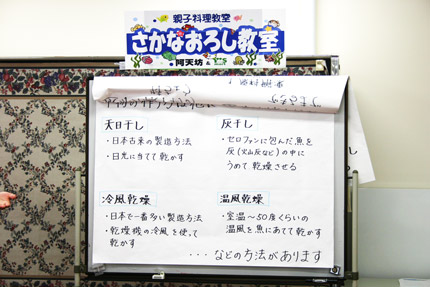 親子料理教室
さかなおろし教室
阿天坊
天日干し
・日本古来の製造方法
・日光に当てて乾かす
灰干し
・セロファンに包んだ魚を
灰(火山灰など)の中に
うめて、乾燥させる
冷風乾燥
・日本で一番多い製造方法
・乾燥機の冷風を使って
乾かす
温風乾燥
・室温〜50度くらいの
温風を魚にあてて乾かす
・・・などの方法があります